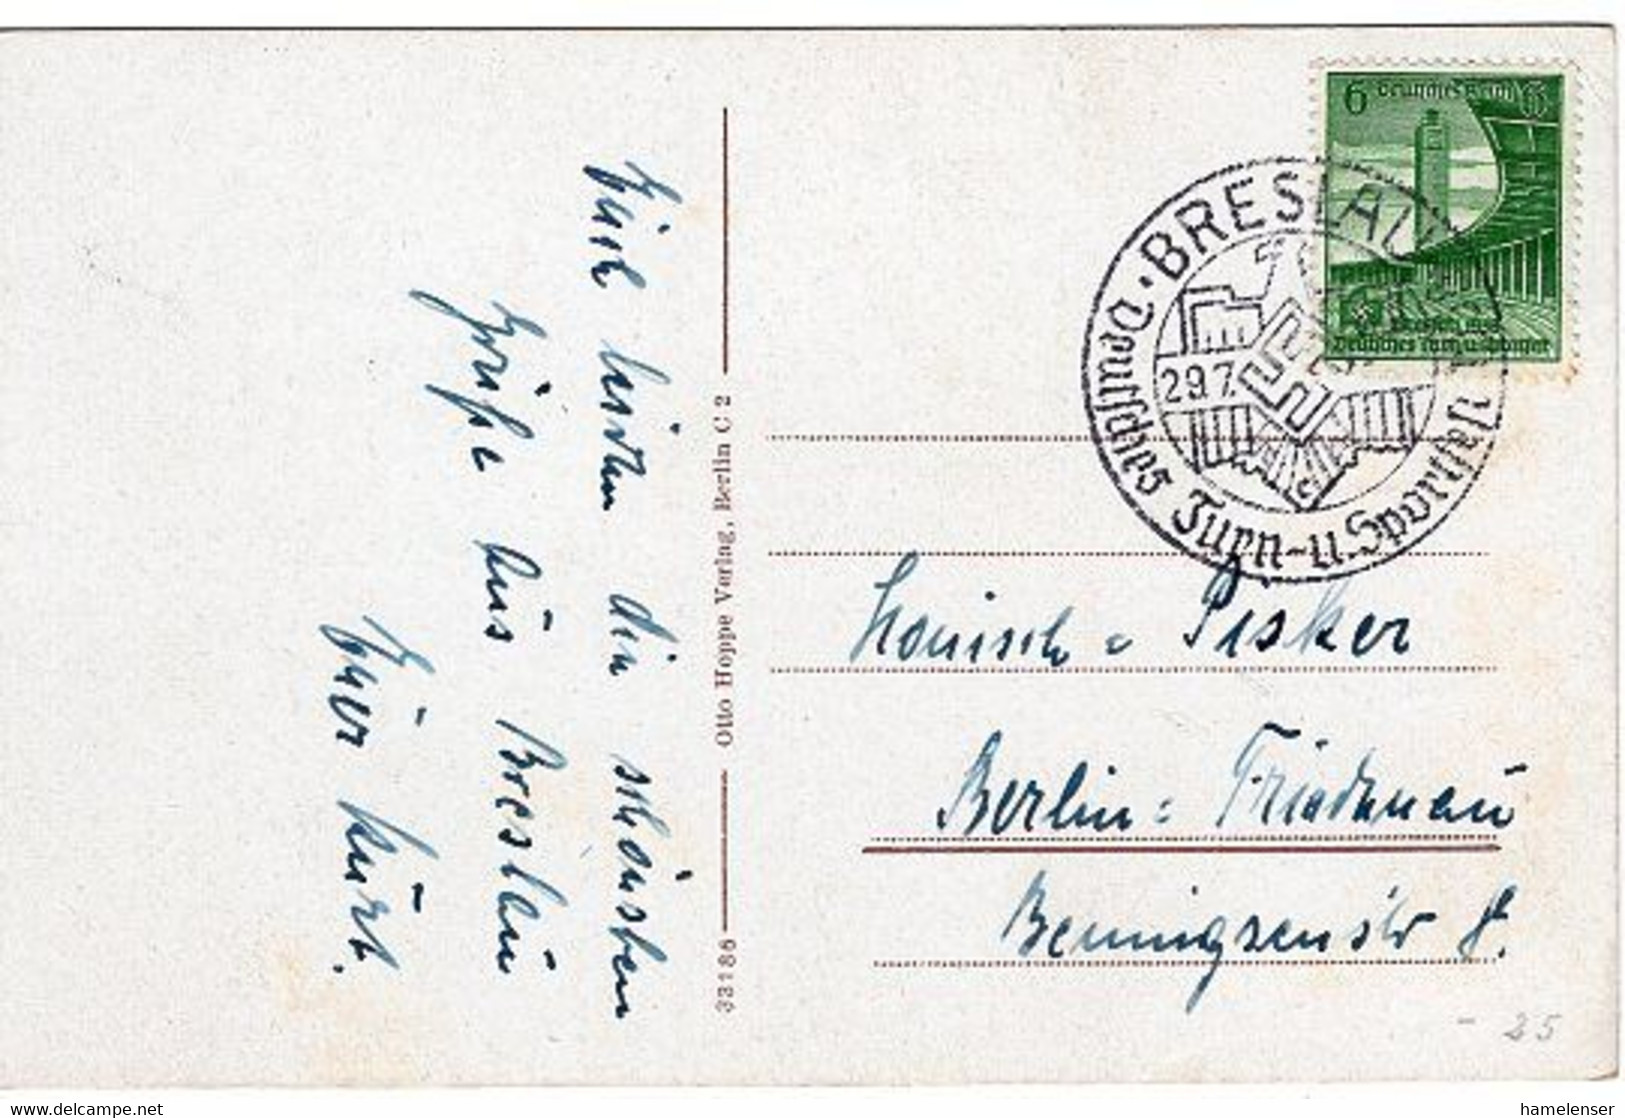 Euch beiden die schönsten
Grüße aus Breslau
Euer Kurt.
33186 Otto Hoppe Verlag, Berlin C 2
6 Deutsches Reich 6
Breslau 1938
Deutsches Turn u. Sportfest
BRESLAU
29.7.
Deutsches Turn- u. Sportfest
Pisker
Berlin = Friedenau
Bennigsenstr 8.
- 25
www.delcampe.net
hamelenser